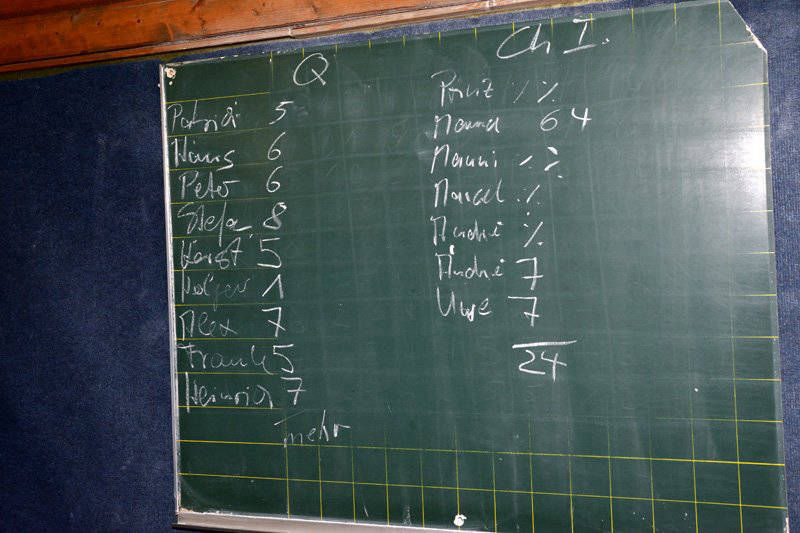 Q
Patrick 5
Hans 6
Peter 6
Stefan 8
Horst 5
Holger 1
Alex 7
Frank 5
Heinrich 7
mehr
Ch I.
Prinz ٪ ٪
6 4
Manni ٪ ٪
Marcel ٪
Andrei ٪
Andrei 7
Uwe 7
24